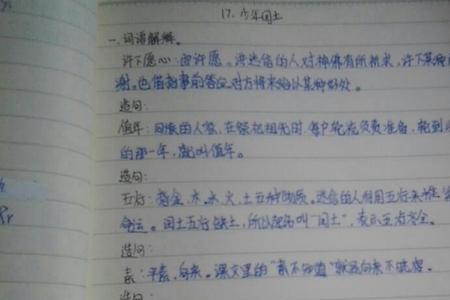 17. 少年闰土
一. 词语解释.
许下愿心: 即许愿。迷信的人对神佛有所祈求, 许下某种
谢。也借指事前答应对方将来给以某种好处。
造句:
值年: 同族的人家, 在祭祀祖先时, 每户轮流负责准备, 轮到
的那一年, 就叫值年。
造句:
五行: 指金、木、水、火、土五种物质。迷信的人用五行来推
命运。闰土五行缺土, 所以起名叫“闰土”, 表示五行齐全。
造句:
素: 平素, 向来。课文里的“素不知道”就是向来不晓得。
造句: